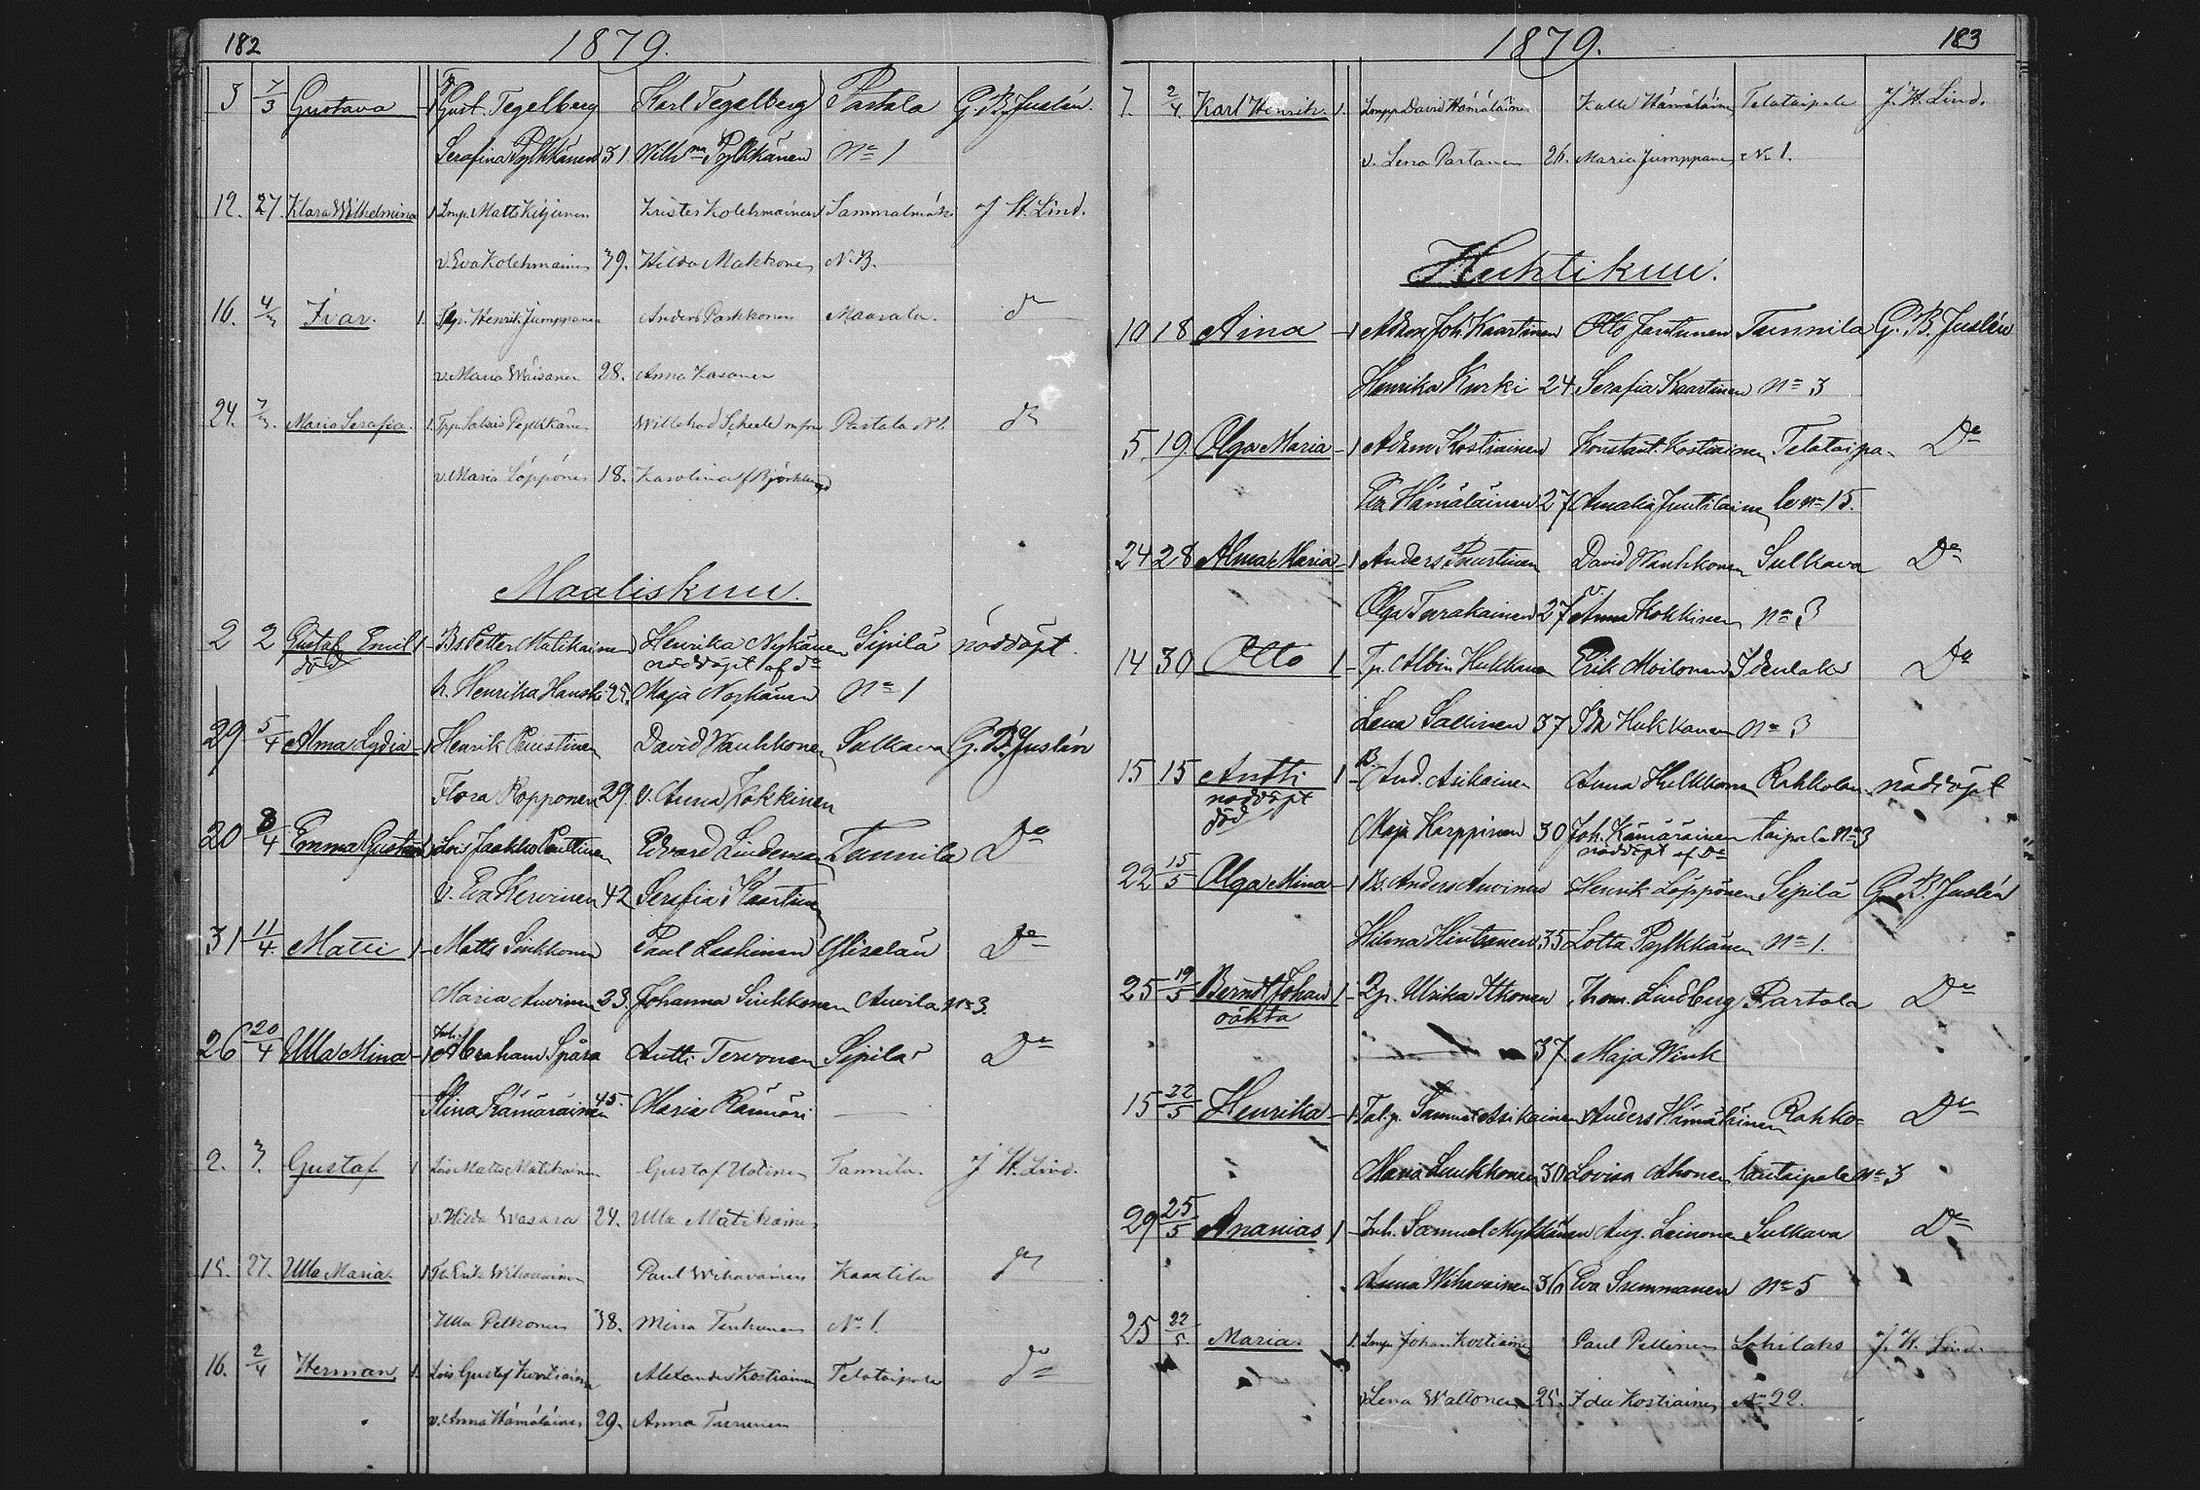 182 1879.
3 7/3 Gustava 1 Gust. Tegelberg Karl Tegelberg Partala G. B. Juslén.
Serafina Pylkkänen 31 Vilh:na Pylkkänen No 1
12. 27. Klara Wilhelmina 1 Lmp. Matts Kejonen Krister Kolehmainen Sammalmäki J. H. Lind.
v. Eva Kolehmainen 39. Hilda Makkonen N. 13.
16. 4/3 Ivar. 1. Henrik Jumppanen Anders Parkkonen Maarala. do
v. Maria Wäisänen 28. Anna Kasanen
24. 7/3. Maria Serafia. 1. Pylkkänen Willehad Scheele Partala N 1. do
v. Maria Löppönen 18. Karolina Björklund
Maaliskuu.
2 2 Gustaf Emil 1 Bs. Petter Matikainen Henrika Nykänen Sipilä nöddöpt.
död nöddöpt af do
h. Henrika Hanski 25. Maja Nykänen No 1
29 5/4 Alma Lydia 1 Henrik Puustinen David Wauhkonen Sulkava G. B. Juslén
Flora Ropponen 29 v. Anna Kokkinen
20 8/4 Emma Gustava Lois Jaakko Pouttinen Edvard Lindeman Tannila Do
v. Eva Kervinen 42 Serafia Kaartinen
31 11/4. Matti 1 Matts Sinkkonen Paul Laakinen Do
Maria Auvinen 33. Johanna Sinkkonen Auvila No 3.
26 20/4 Ulla Mina 1 Abraham Spåra Antti Tervonen Sipilä Do
Stina Kämäräinen 45. Maria Rännäri
2. 3. Gustaf 1 Lois Matts Matikainen Gustaf Utrinen Tannila. J. H. Lind.
v. Hilda Wasara 24. Ulla Matikainen
15. 27. Ulla Maria. 1 Erik Wihavainen Paul Wihavainen Kaartila do
Ulla Pelkonen 38. Mina Tenhunen No 1.
16. 2/4 Herman 1. Lois Gustaf Kostiainen Alexander Kostiainen Telataipale do
v. Anna Hämäläinen 29. Anna
1879. 183
7. 2/4. Karl Henrik. 1. David Hämäläinen Kalle Hämäläinen Telataipale J. H. Lind.
v. Lena Partanen 26. Maria Jumppanen No 1.
Huhtikuu.
10 18 Aina 1 Adam Joh. Kaartinen Otto Jantunen Tannila G. B. Juslén
Henrika Kurki 24 Serafia Kaartinen No 3
5 19. Olga Maria 1 Adam Kostiainen Konstant. Kostiainen Telataipa- Do
Eva Hämäläinen 27 Amalia Juutilainen le No 15.
24 28 Alma Maria 1 Anders Puustinen David Wauhkonen Sulkava Do
Olga Turakainen 27 v. Anna Kokkinen No 3
14 30 Otto 1 Tp. Albin Hukkanen Erik Moilonen Idenlaks Do
Lena Sallinen 37 Ida Hukkanen No 3
15 15 Antti 1 And. Asikainen Anna Kukkonen Rakkolan- nöddöpt
nöddöpt
död Maja Karppinen 30 Joh. Kämäräinen taipale No 3
nöddöpt af Do
22 15/5 Olga Mina 1 Bs. Anders Auvinen Henrik Löppönen Sipilä G. B. Juslén
Hilma Hintsanen 35 Lotta Pylkkänen No 1.
25 19/5 Bernd Johan 1 Pp. Ulrika Itkonen Thom. Lindberg Partala Do
oäkta
37 Maja Wink
15 22/5 Henrika 1 Talp. Samuel Asikainen Anders Hämäläinen Rakko- Do
Maria Luukkonen 30 Lovisa Ahonen lantaipale No 3
29 25/5 Ananias 1 Inh. Samuel Nykänen Aug. Leinonen Sulkava Do
Anna Wihavainen 36 Eva Summanen No 5
25 22/5 Maria. 1. Johan Kostiainen Paul Pellinen Lohilaks J. H. Lind.
v. Lena Waltonen 25. Ida Kostiainen No 22.